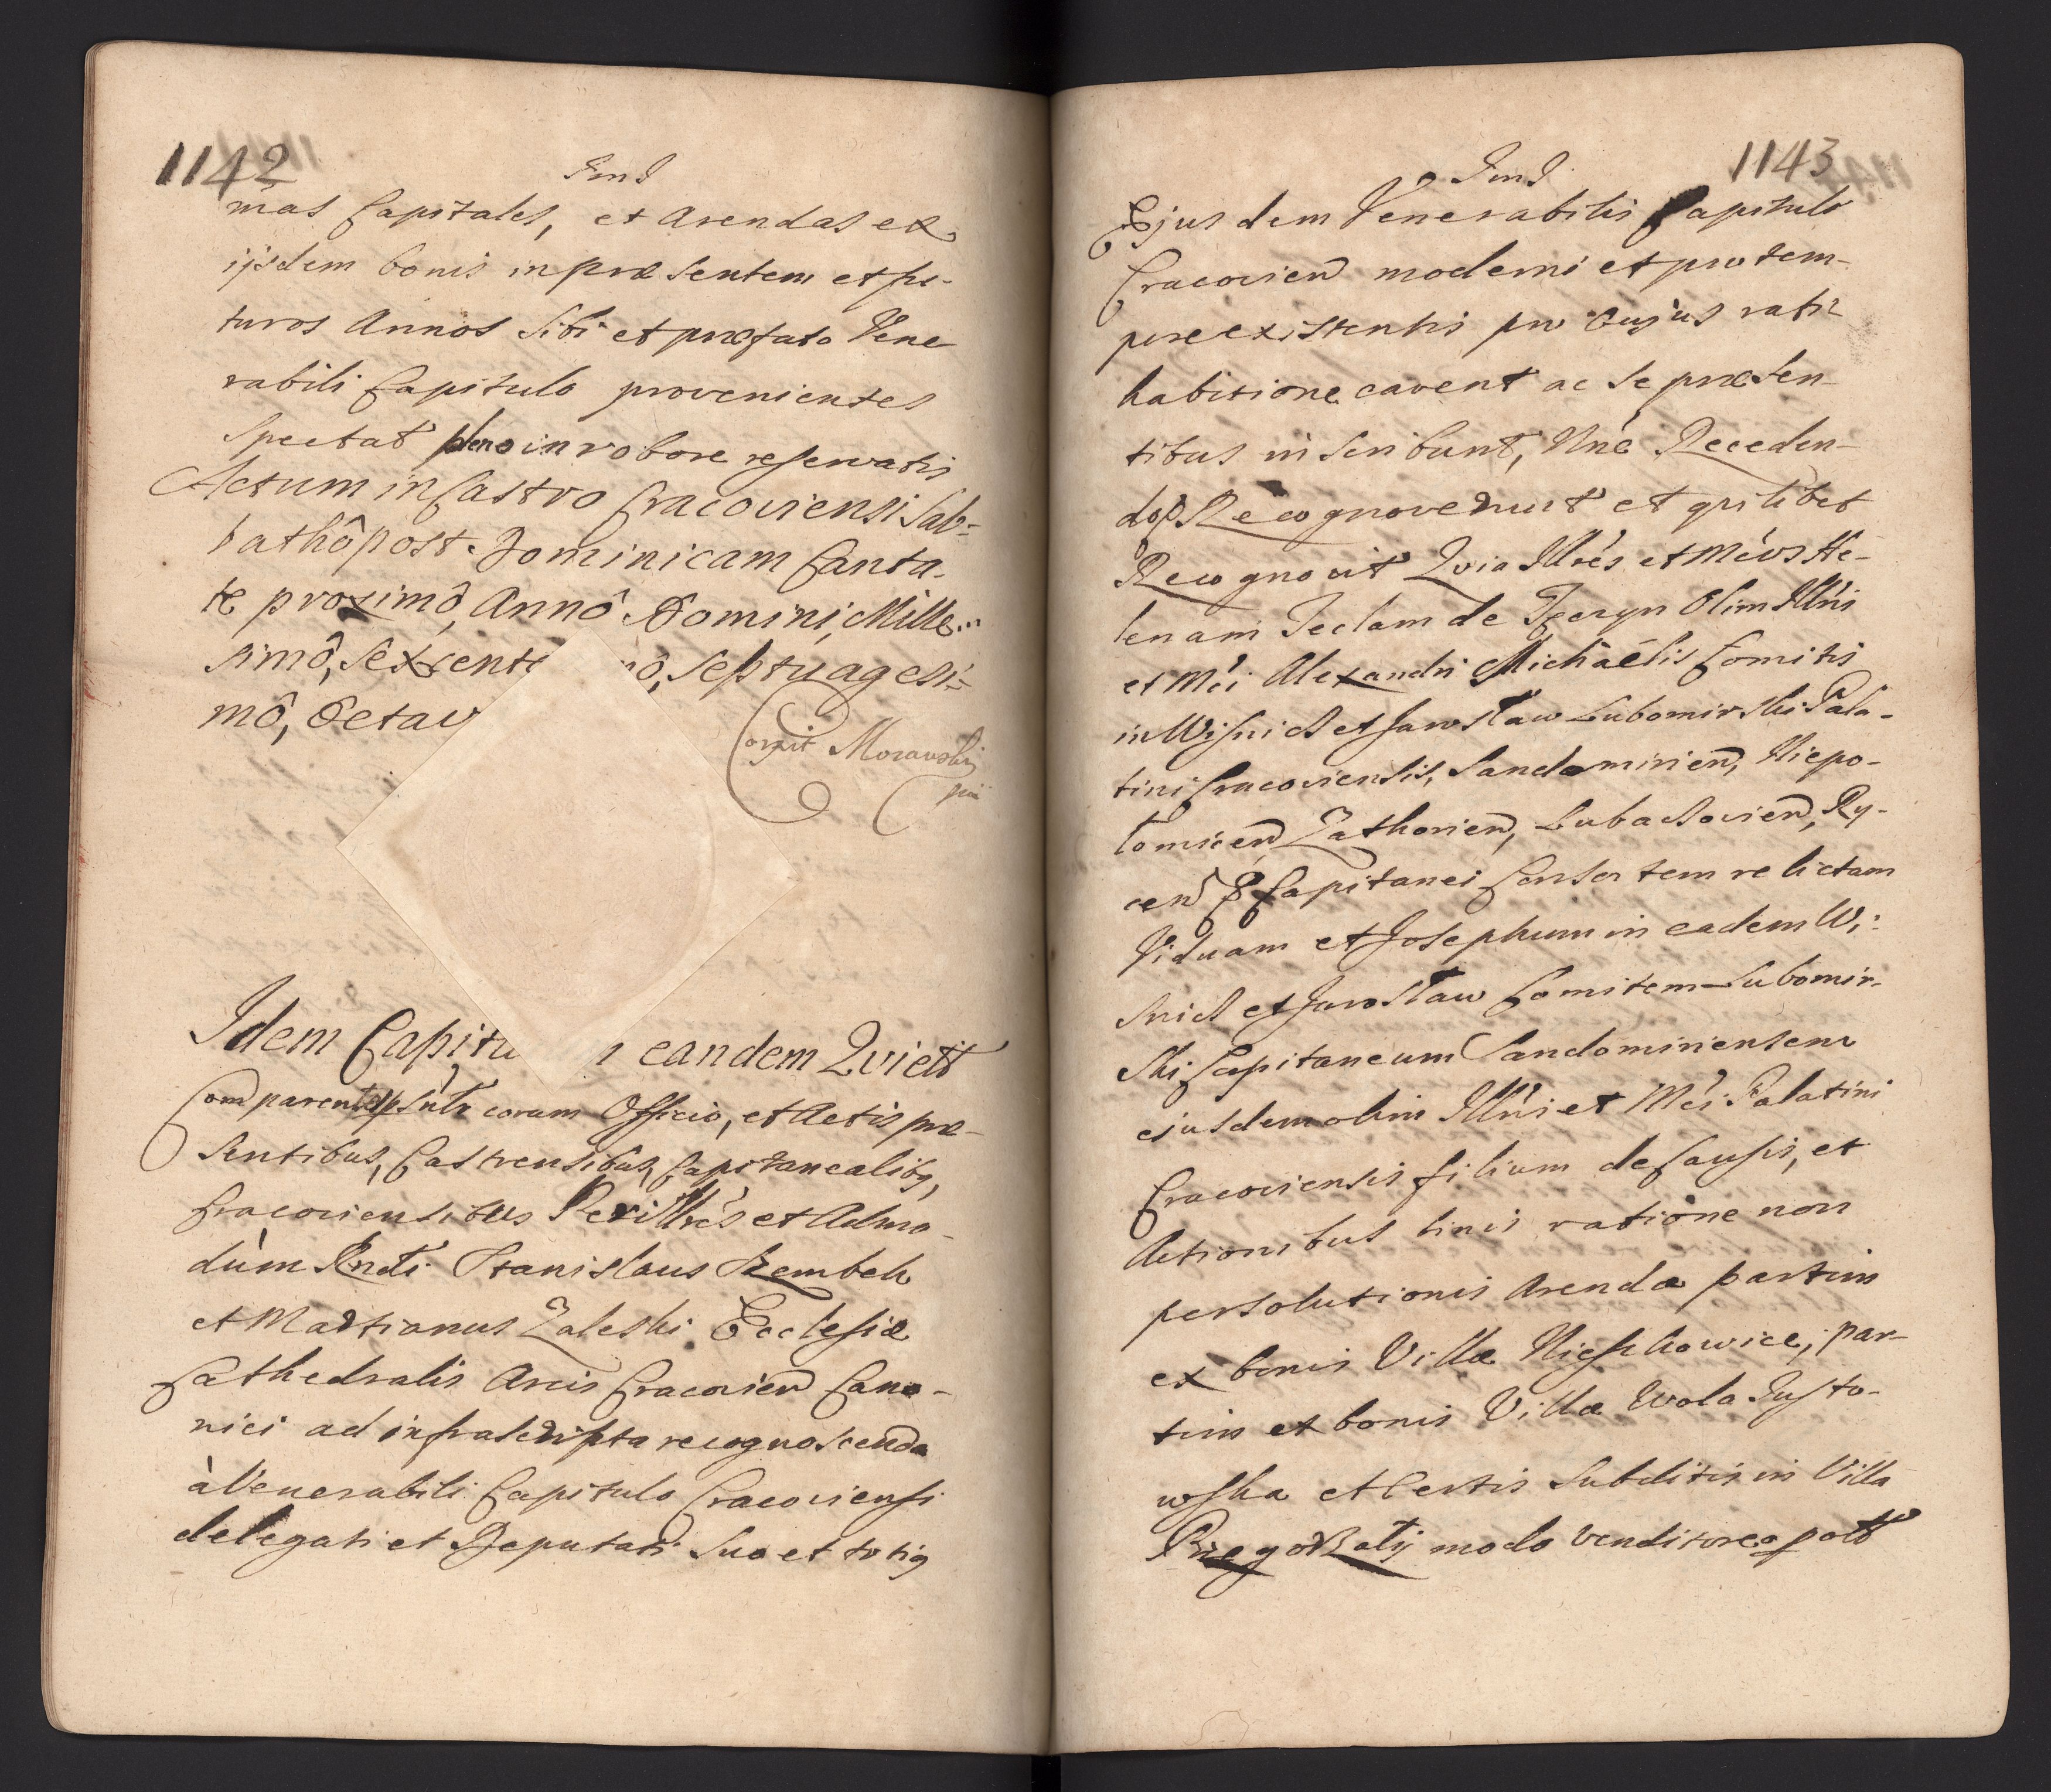 1142
Ind
mas Capitales, et Arendas ex
ijsdem bonis in præsentem et fu-
turos Annos Sibi et præfato Vene
rabili Capitulo provenientes
Spectat pleno in robore reservatis
Actum in Castro Cracoviensi Sab-
bathô post Dominicam Canta-
te proximô, Annô Domini, Mille-
simô, Sexcent mô, Septuagesi-
mô, Octav
Corrxit Moravski
Idem Capitu eandem Quiett
Comparentes psńtr coram Officio, et Actis præ-
sentibus, Castrensibus, Capitanealibq,
Cracoviensibus Perillrés et Admo-
dùm Rndi Stanislaus Szembek
et Martianus Zaleski Ecclesiæ
Cathedralis Arcis Cracovien Cano-
nici ad infrascripta recognoscenda
à Venerabili Capitulo Cracoviensi
delegati et Deputati Suo et totiq
1143
Ind
Ejusdem Venerabilis Capitulo
Cracovien moderni et pro tem-
pore existentis pro cujus rati
habitione cavent ac se præsen-
tibus inscribunt, Unć Receden-
do Recognoverunt et quilibet
Recognovit Quia Illrés et Mćus He-
lenam Teclam de Tęczyn Olim Illrńi
et Mći Alexandri Michaëlis Comitis
in Wiśnicz et Jarosław Lubomirski Pala-
tini Cracoviensis, Sandomirien, Niepo-
lomicen Zathorien, Lubaczovien, Ry-
cen Capitanei Consortem relictam
Viduam et Josephum in eadem Wi-
śnicz et Jarosław Comitem Lubomir-
ski Capitaneum Sandomiriensem
ejusdem olim Illrńi et Mći Palatini
Cracoviensis filium de Causis, et
Actionibus binis ratione non
persolutionis Arendæ partim
ex bonis Villæ Nieszkowice, par-
tim ex bonis Villæ Wola Justo-
wska et Certis Subditis in Villa
modo venditores